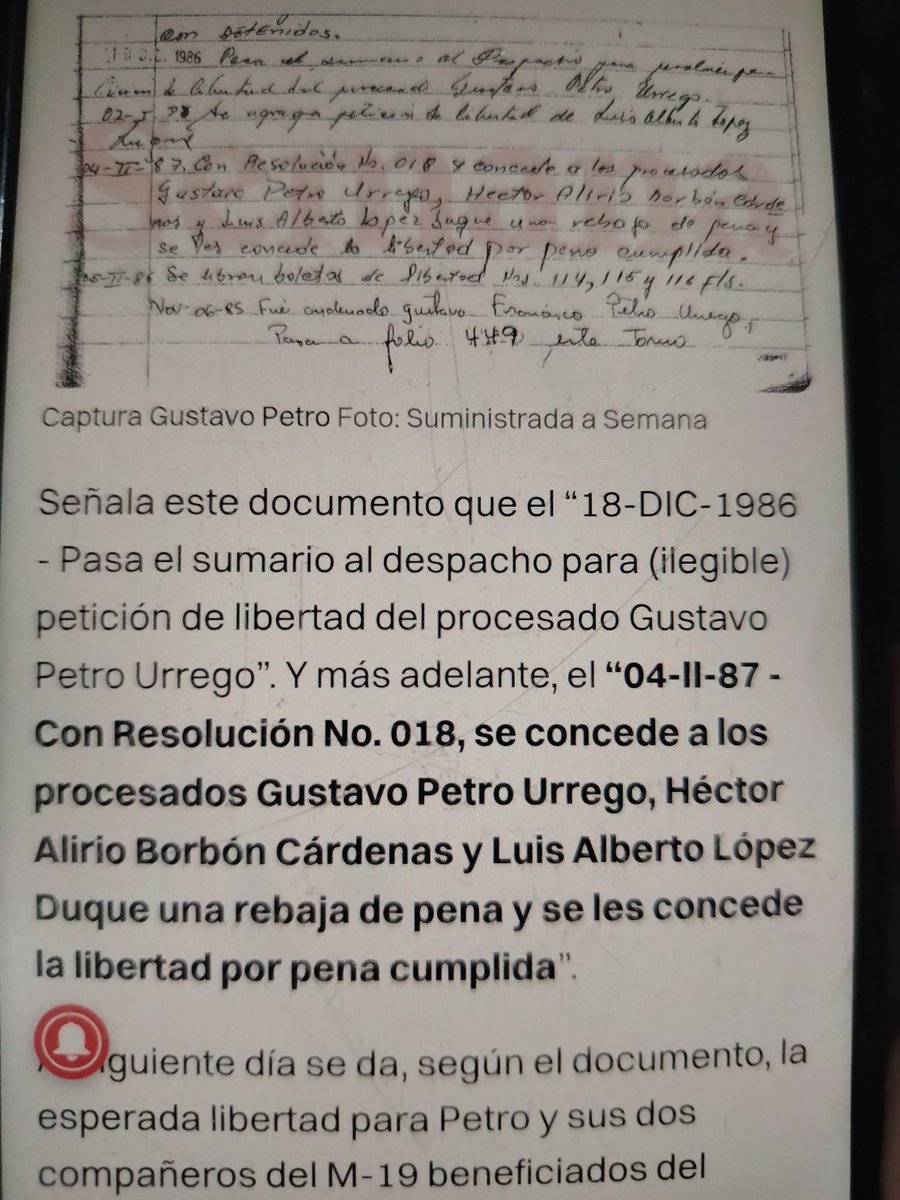 con Detenidos.
18 DIC. 1986 Pasa el sumario al Despacho para
de libertad del procesado Gustavo Petro Urrego.
02-I- Se agrega peticion de libertad de Luis Alberto Lopez
04-II-87. Con Resolución No. 018 se concede a los procesados
Gustavo Petro Urrego, Hector Alirio Borbón Carde
nas y Luis Alberto Lopez Duque una rebaja de pena y
se les concede la libertad por pena cumplida.
05-II-86 Se libran boletas de libertad Nos. 114, 115 y 116 F/s.
Nov-06-85 Fue condenado gustavo Francisco Petro Urrego,
Pasa a folio 449 este Tomo
Captura Gustavo Petro Foto: Suministrada a Semana
Señala este documento que el “18-DIC-1986
- Pasa el sumario al despacho para (ilegible)
petición de libertad del procesado Gustavo
Petro Urrego”. Y más adelante, el “04-II-87 -
Con Resolución No. 018, se concede a los
procesados Gustavo Petro Urrego, Héctor
Alirio Borbón Cárdenas y Luis Alberto López
Duque una rebaja de pena y se les concede
la libertad por pena cumplida”.
guiente día se da, según el documento, la
esperada libertad para Petro y sus dos
compañeros del M-19 beneficiados del